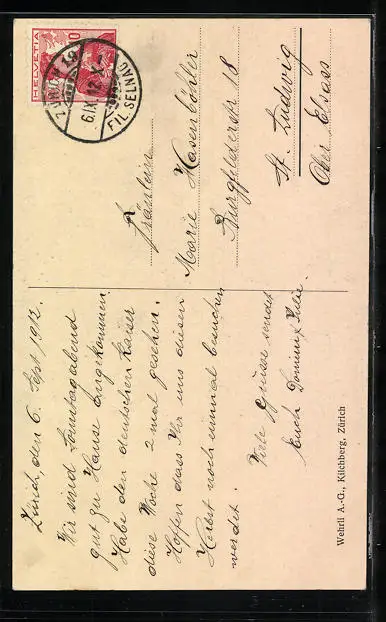 Zürich, den 6. Sept. 1912.
Wir sind Sonntagabend
gut zu Hause angekommen.
Habe den deutschen Kaiser
diese Woche 2 mal gesehen.
Hoffen dass Ihr uns diesen
Herbst noch einmal besuchen
werdet.
Viele Grüsse sendet
Euch Dominik &
HELVETIA
10
ZÜRICH 19
6.IX.12.X
FIL. SELNAU
Fräulein
Marie Hasenböhler
Burgfelderstr 18
St. Ludwig
Ober Elsass
Wehrli A.-G., Kilchberg, Zürich